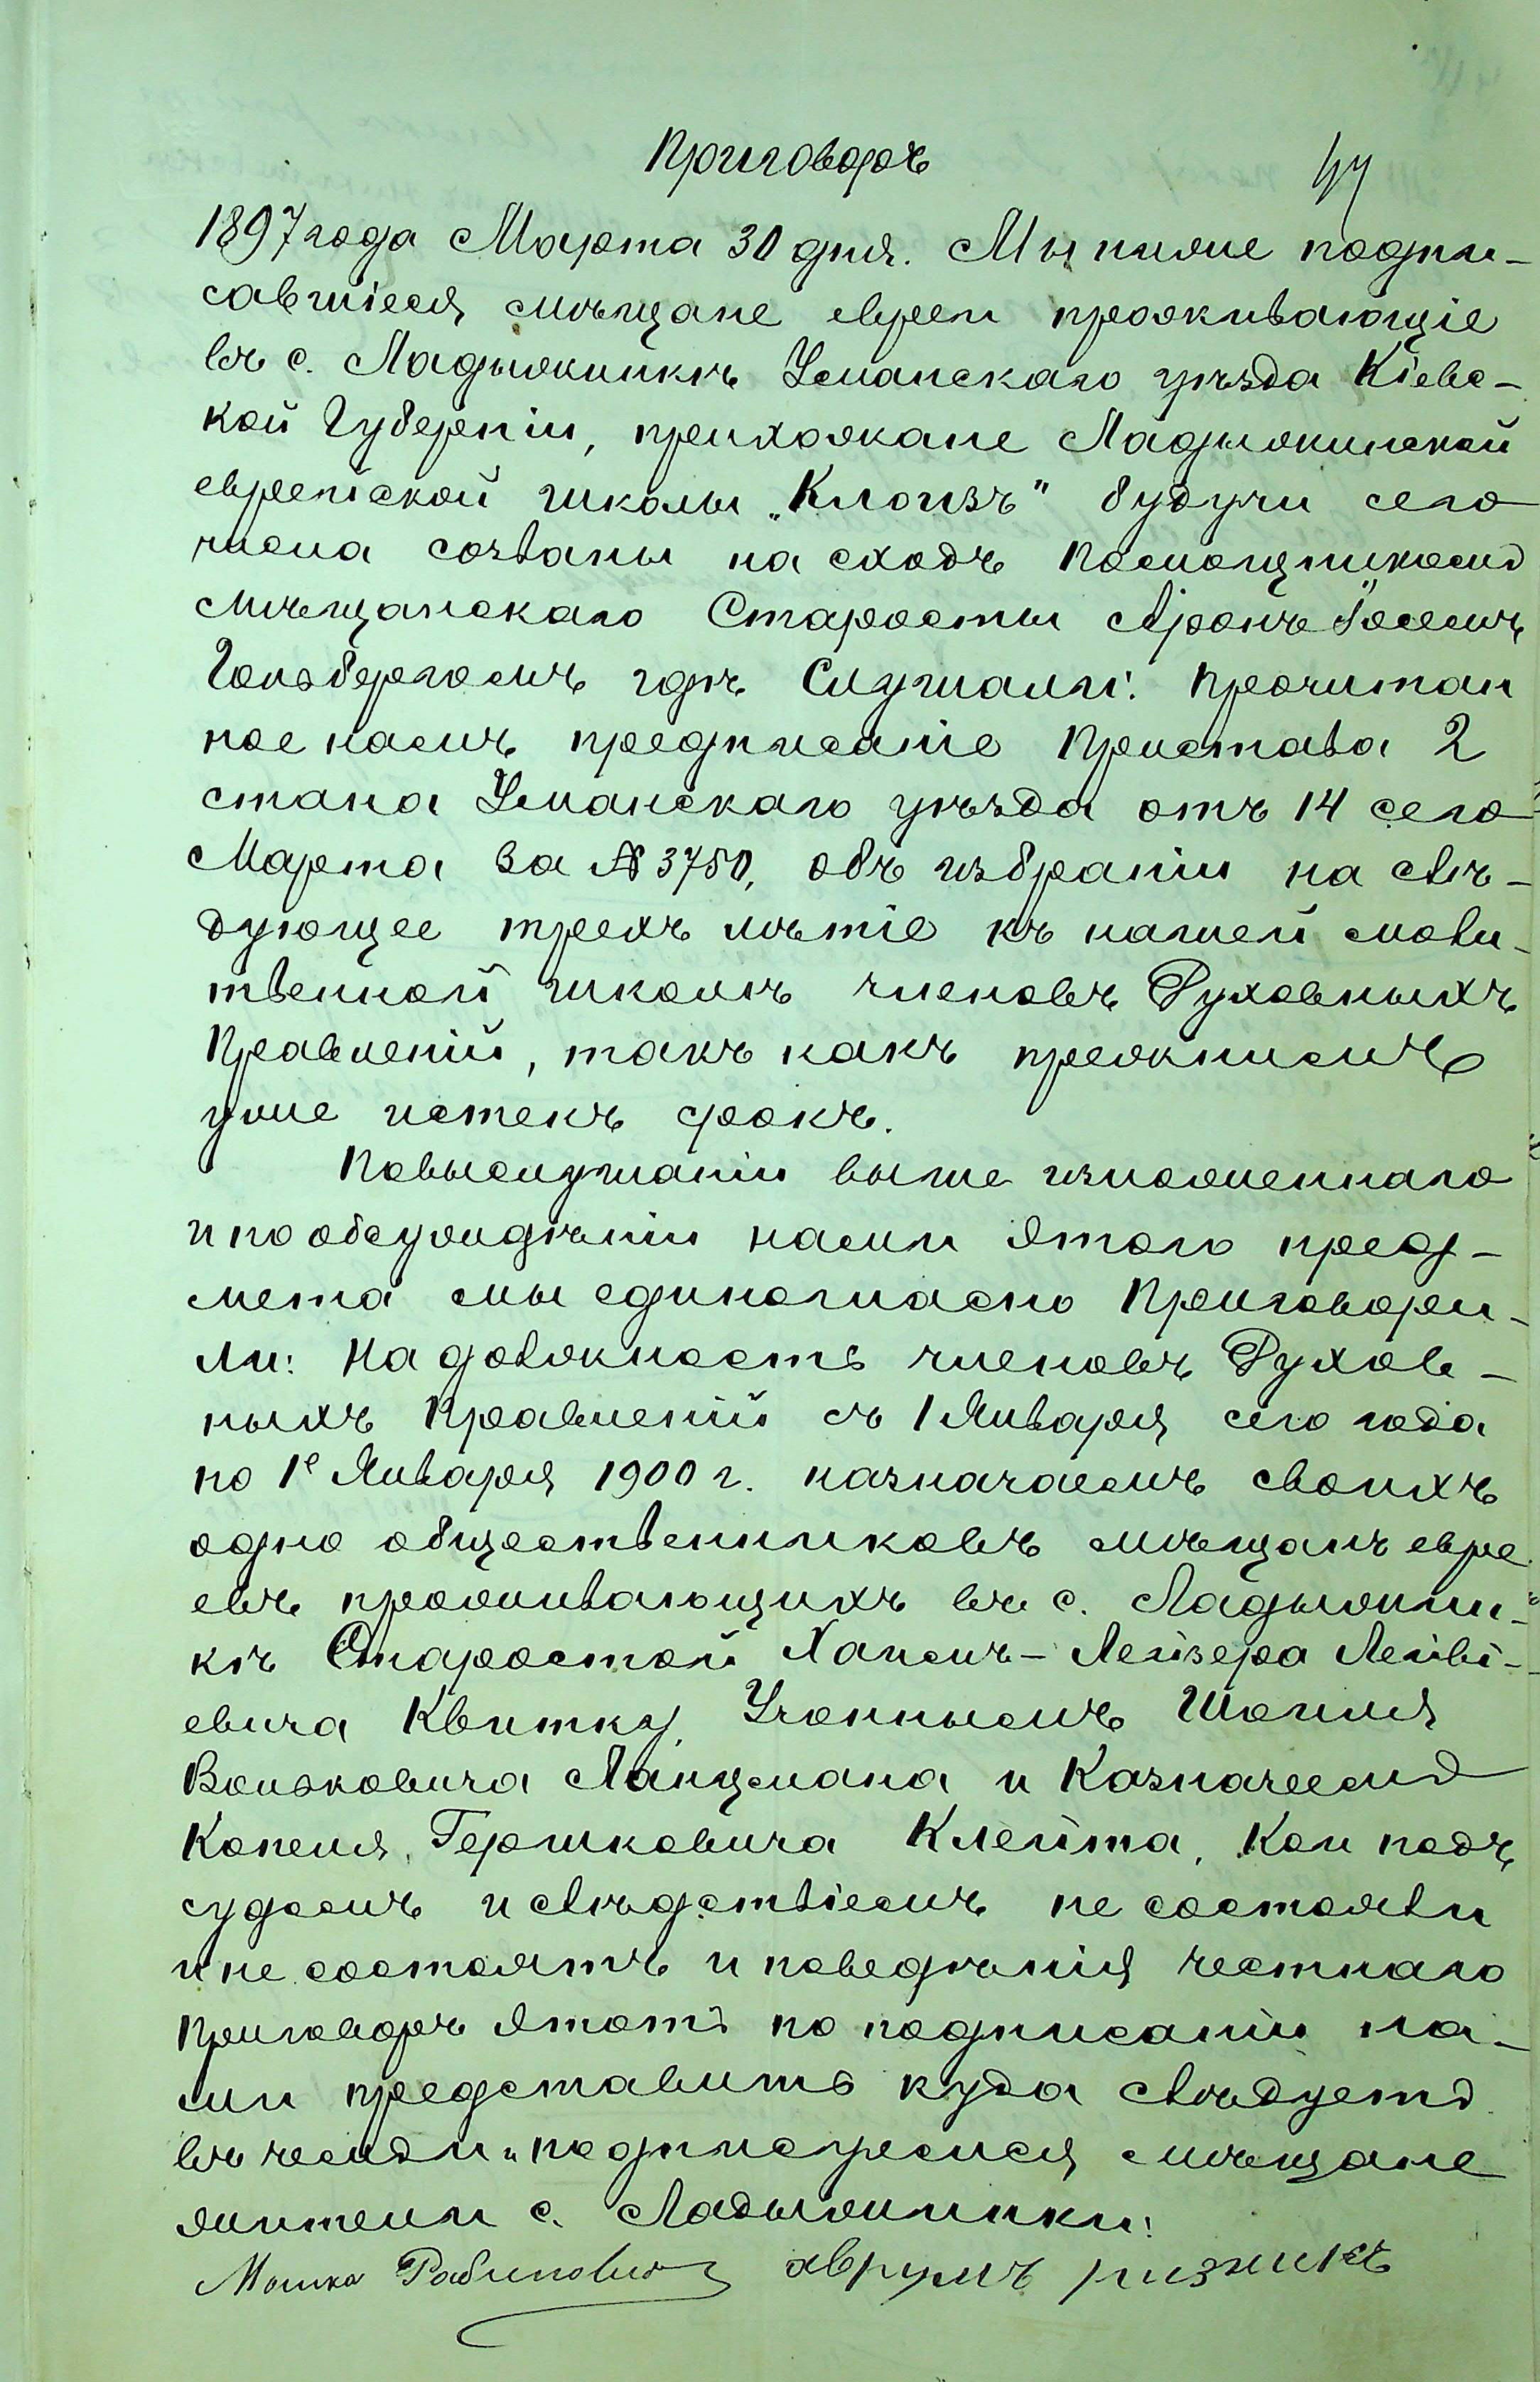 Приговоръ
47
1897 года Марта 30 дня. Мы ниже подпи-
савшіеся мѣщане евреи проживающіе
въ с. Ладыжинкѣ Уманскаго уѣзда Кіевс-
кой Губерніи, прихожане Ладыжинской
еврейской школы „Клоизъ" будучи сего
числа созваны на сходъ Помощникомъ
Мѣщанскаго Старосты Арономъ Іосемъ
Гольдбергомъ гдѣ Слушали: Прочитан
ное намъ предписаніе Пристава 2
стана Уманскаго уѣзда отъ 14 сего
Марта за № 3750, объ избраніи на слѣ-
дующее трехъ лѣтіе къ нашей моли-
твенной школѣ членовъ Духовныхъ
Правленій, такъ какъ прежнимъ
уже истекъ срокъ.
Повыслушаніи выше изложеннаго
и по обсужденѣніи нами этого пред-
мета мы единогласно Приговори-
ли: На должность членовъ Духов-
ныхъ Правленій съ 1 Января сего года
по 1е Января 1900 г. назначаемъ своихъ
одно общественниковъ мѣщанъ евре
евъ проживающихъ въ с. Ладыжин-
кѣ Старостой Хаимъ-Лейзера Лейві-
евича Квитку, Ученнымъ Шоиля
Вольковича Ланцмана и Казначеемъ
Копеля Гершковича Клейта, Кои подъ
судомъ и слѣдствіемъ не состояли
и не состоятъ и поведѣнія честнаго
Приговоръ этотъ по подписаніи на-
ми представить куда слѣдуетъ
въ чемъ и подписуемся мѣщане
жители с. Ладыжинки:
Мошко Рабиновичъ Аврумъ Ризникъ